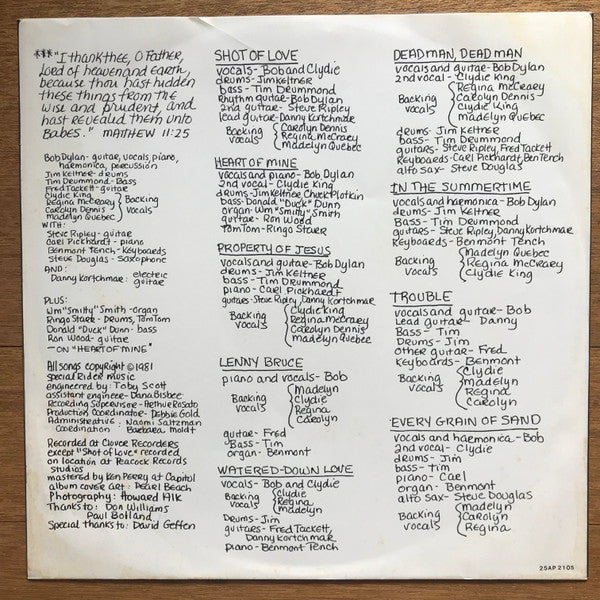 ***"I thank thee, O Father,
Lord of heaven and earth,
because thou hast hidden
these things from the
wise and prudent, and
hast revealed them unto
Babes." MATTHEW 11:25
Bob Dylan - guitar, vocals, piano,
harmonica, percussion
Jim Keltner - drums
Tim Drummond - Bass
Fred Tackett - guitar
Clydie King
Regina McCrarey
Carolyn Dennis
Madelyn Quebec
Backing
Vocals
WITH:
Steve Ripley - guitar
Carl Pickhardt - piano
Benmont Tench - Keyboards
Steve Douglas - Saxophone
AND:
Danny Kortchmar: electric
guitar
PLUS:
Wm "Smitty" Smith - Organ
Ringo Starr - Drums, Tom Tom
Donald "Duck" Dunn - bass
Ron Wood - guitar
- ON "HEART OF MINE"
All songs copyright © 1981
Special Rider Music
engineered by: Toby Scott
assistant engineer - Dana Bisbee
Recording Supervisor - Arthur Rosato
Production Coordinator - Debbie Gold
Administrative: Naomi Saltzman
Coordination Barbara Moldt
Recorded at Clover Recorders
except "Shot of Love" recorded
on location at Peacock Records
Studios
mastered by Ken Perry at Capitol
album cover art: Pearl Beach
Photography: Howard Alk
Thanks to: Don Williams
Paul Bolland
Special thanks to: David Geffen
SHOT OF LOVE
vocals - Bob and Clydie
drums - Jim Keltner
bass - Tim Drummond
Rhythm guitar - Bob Dylan
2nd guitar - Steve Ripley
lead guitar - Danny Kortchmar
Backing
vocals
Carolyn Dennis
Regina McCrarey
Madelyn Quebec
HEART OF MINE
vocals and piano - Bob Dylan
2nd vocal - Clydie King
drums - Jim Keltner Chuck Plotkin
bass - Donald "Duck" Dunn
organ - Wm "Smitty" Smith
guitar - Ron Wood
Tom Tom - Ringo Starr
PROPERTY OF JESUS
vocals and guitar - Bob Dylan
drums - Jim Keltner
bass - Tim Drummond
piano - Carl Pickhardt
guitars - Steve Ripley, Danny Kortchmar
Backing
vocals
Clydie King
Regina McCrarey
Carolyn Dennis
Madelyn Quebec
LENNY BRUCE
piano and vocals - Bob
Backing
vocals
Madelyn
Clydie
Regina
Carolyn
guitar - Fred
Bass - Tim
organ - Benmont
WATERED-DOWN LOVE
vocals - Bob and Clydie
Backing
vocals
Clydie
Regina
Madelyn
Drums - Jim
guitars - Fred Tackett,
Danny Kortchmar
piano - Benmont Tench
DEAD MAN, DEAD MAN
vocals and guitar - Bob Dylan
2nd vocal - Clydie King
Backing
vocals
Regina McCrarey
Carolyn Dennis
Clydie King
Madelyn Quebec
drums - Jim Keltner
bass - Tim Drummond
guitars - Steve Ripley, Fred Tackett
Keyboards - Carl Pickhardt, Ben Tench
alto sax - Steve Douglas
IN THE SUMMERTIME
vocals and harmonica - Bob Dylan
drums - Jim Keltner
Bass - Tim Drummond
guitars - Steve Ripley, Danny Kortchmar
Keyboards - Benmont Tench
Backing
vocals
Madelyn Quebec
Regina McCrarey
Clydie King
TROUBLE
vocals and guitar - Bob
Lead guitar - Danny
Bass - Tim
Drums - Jim
other guitar - Fred
Keyboards - Benmont
Backing
vocals
Clydie
Madelyn
Regina
Carolyn
EVERY GRAIN OF SAND
vocals and harmonica - Bob
2nd vocal - Clydie
drums - Jim
bass - Tim
piano - Carl
organ - Benmont
alto sax - Steve Douglas
Backing
vocals
Madelyn
Carolyn
Regina
25AP 2105